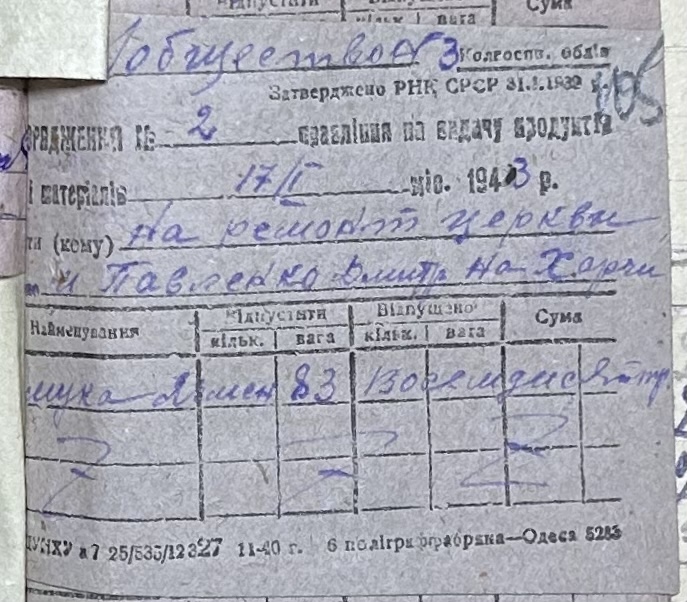 відпустити
кільк. вага Сума
общество № 3 Колгоспн. облік
Затверджено РНК СРСР 31.1.1939 р.
105
№ 2 правління на видачу продуктів
і матеріалів 17/I міс. 1943 р.
(кому) На ремонт церкви
и Павленко Дмитр на Харчи
Найменування Відпустити Відпущено Сума
кільк. вага кільк. вага
мука Ячмен 83 Восемдисят тр.
25/535/12327 11-40 г. 6 поліграффабрика—Одеса 5283